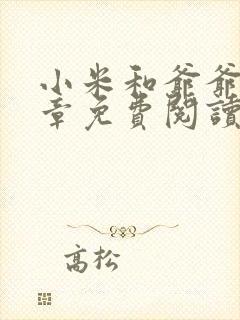 小米和爺爺
章免費閱讀
高松